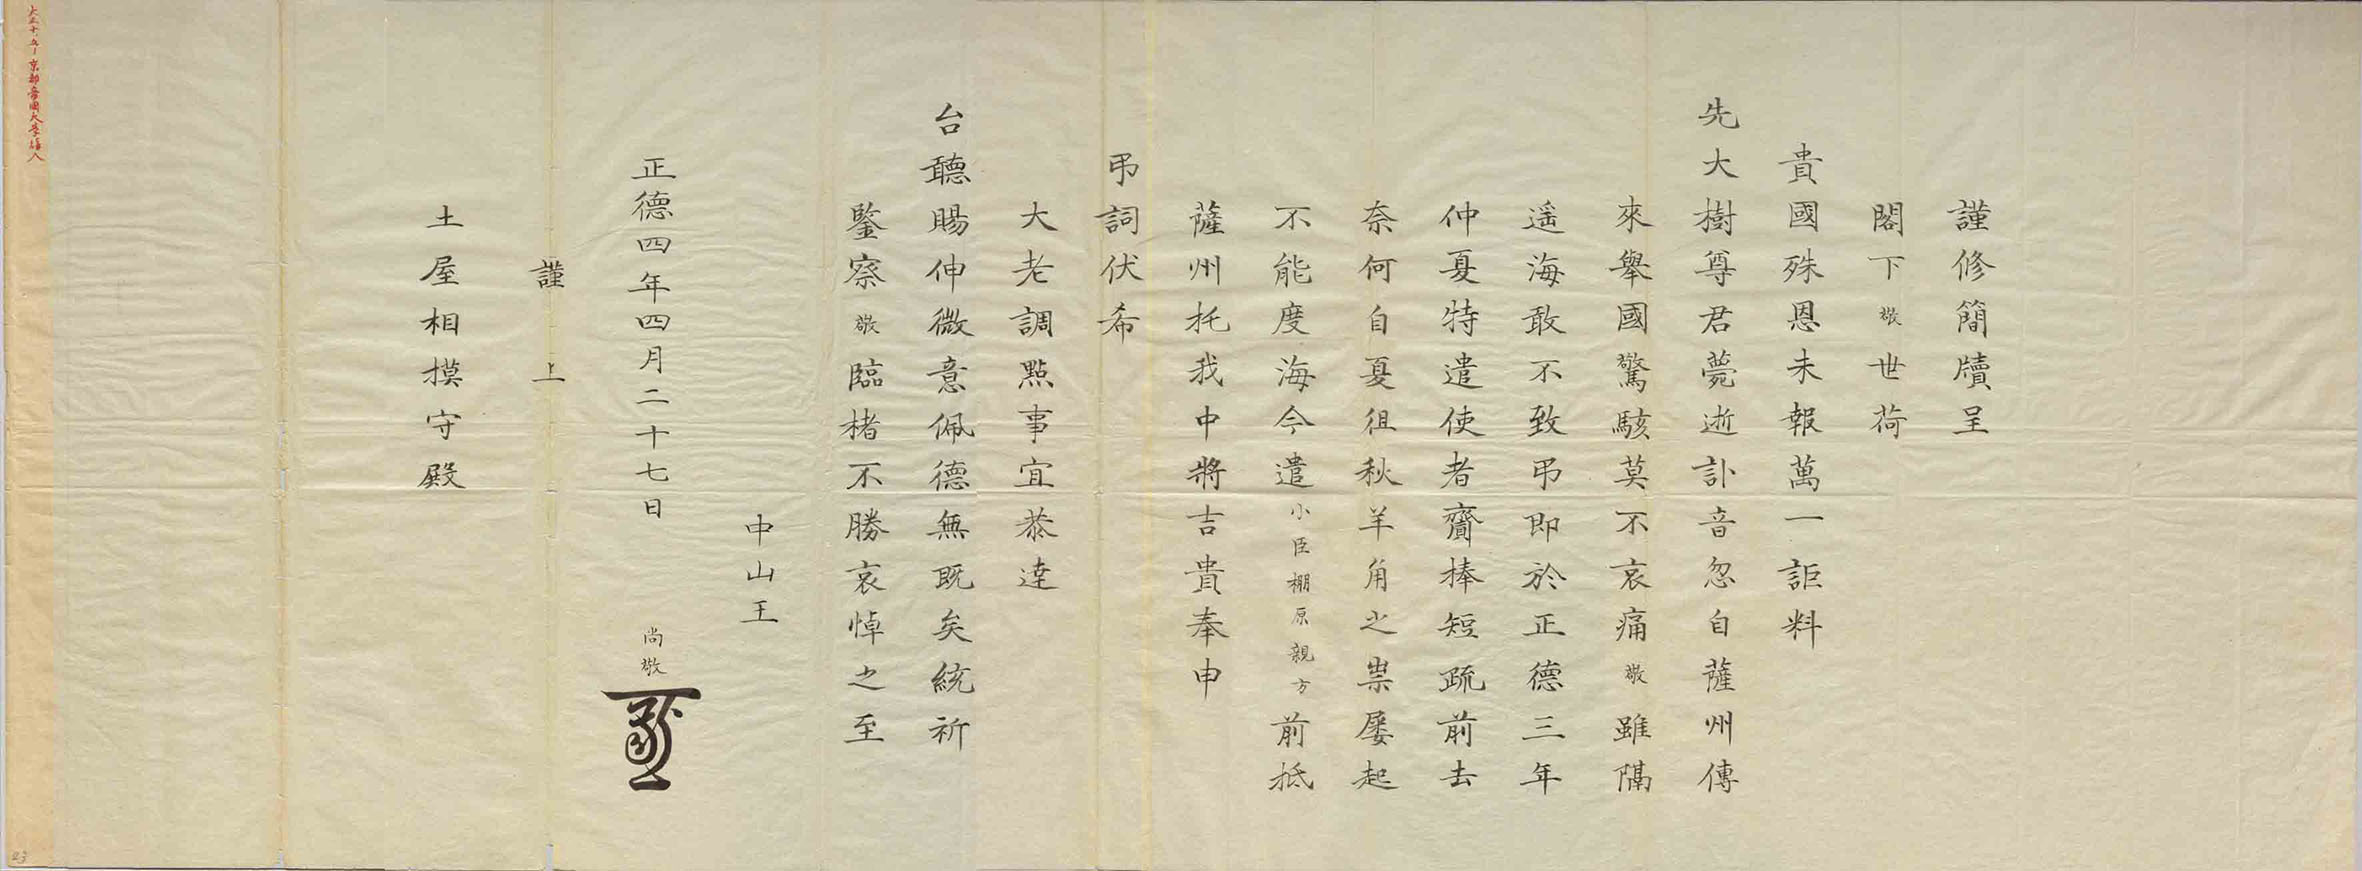 謹修簡牘呈
閣下敬世荷
貴國殊恩未報萬一詎料
先大樹尊君薨逝訃音忽自薩州傳
來舉國驚駭莫不哀痛敬雖隔
遥海敢不致弔即於正德三年
仲夏特遣使者齎捧短疏前去
奈何自夏徂秋羊角之祟屡起
不能度海今遣小臣棚原親方前抵
薩州托我中將吉貴奉申
弔詞伏希
大老調點事宜恭達
台聽賜伸微意佩德無既矣統祈
鑒察敬臨楮不勝哀悼之至
中山王
正德四年四月二十七日 尚敬
謹上
土屋相摸守殿
京都帝國大學
23